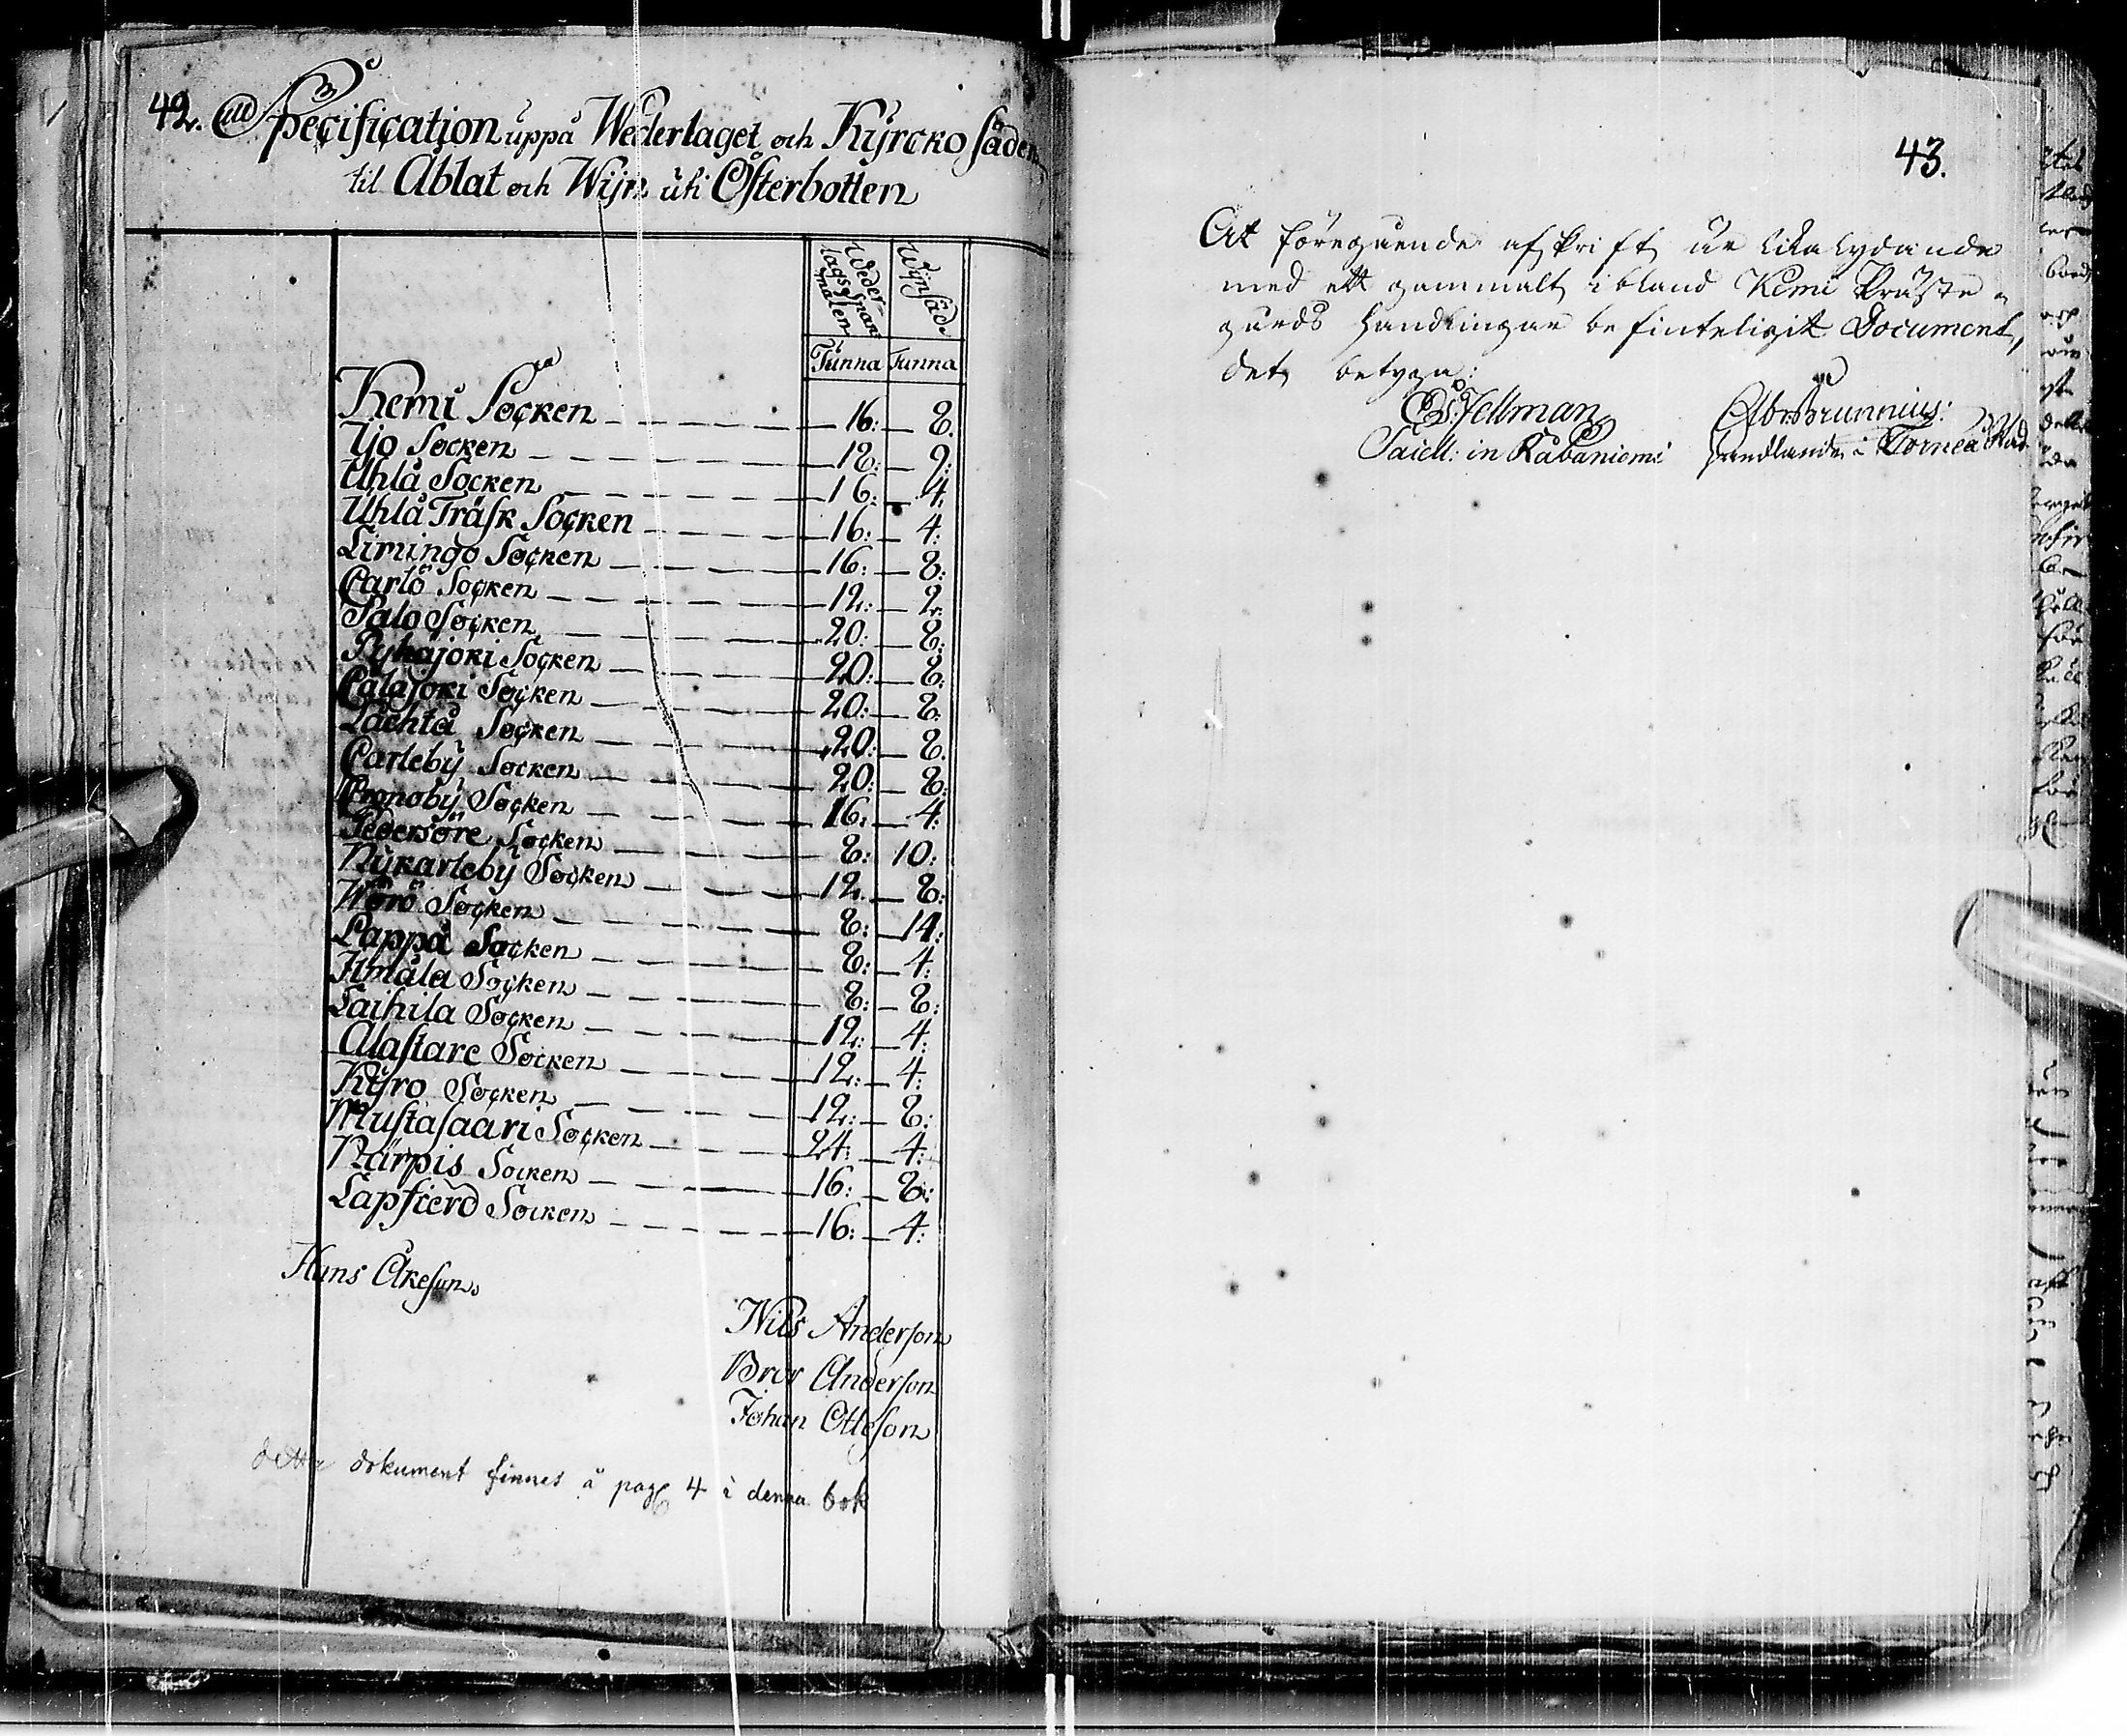 42. Specification uppå Wederlaget och Kyrcko säden
til Ablat och Wijn uti Österbotten
Weder-
lags Span-
målen
Wijnsäd
Tunna Tunna
Kemi Socken 16: 8.
Ijo Socken 12: 9:
Uhlå Socken 16: 4.
Uhlå Träsk Socken 16: 4:
Limingo Socken 16: 8:
Carlö Socken 12: 2.
Salo Socken 20: 8:
Pyhäjoki Socken 20: 8:
Calajoki Socken 20: 8:
Lächtå Socken 20: 8.
Carleby Socken 20: 8:
Cronoby Socken 16: 4:
Pedersöre Socken 8: 10:
Nykarleby Socken 12. 8:
Wörö Socken 8: 14:
Lappå Socken 8: 4:
Ilmåla Socken 8: 8:
Laihila Socken 12: 4:
Alastare Socken 12: 4:
Kyro Socken 12: 8:
Mustasaari Socken 24: 4:
Närpis Socken 16: 8:
Lapfierd Socken 16: 4:
Hans Åkeson
Nils Anderson
Bror Anderson
Johan Otteson
detta dokument finnes å pag 4 i denna bok
43.
At föregående afskrift är lika lydande
med ett gammalt ibland Kemi Präste-
gårds handlingar befinteligit Document,
det betyga:
E. Fellman Abr: Brunnius:
Sacell: in Råvaniemi handlande i Torneå Stad